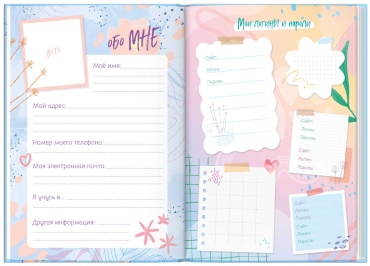 Фото
обо МНЕ
Моё имя:
Мой адрес:
Номер моего телефона:
Моя электронная почта:
Я учусь в
Другая информация:
Мои логины и пароли
Сайт:
Логин:
Пароль:
Сайт:
Логин:
Пароль:
Сайт:
Логин:
Пароль:
Сайт:
Логин:
Пароль:
Сайт:
Логин:
Пароль: